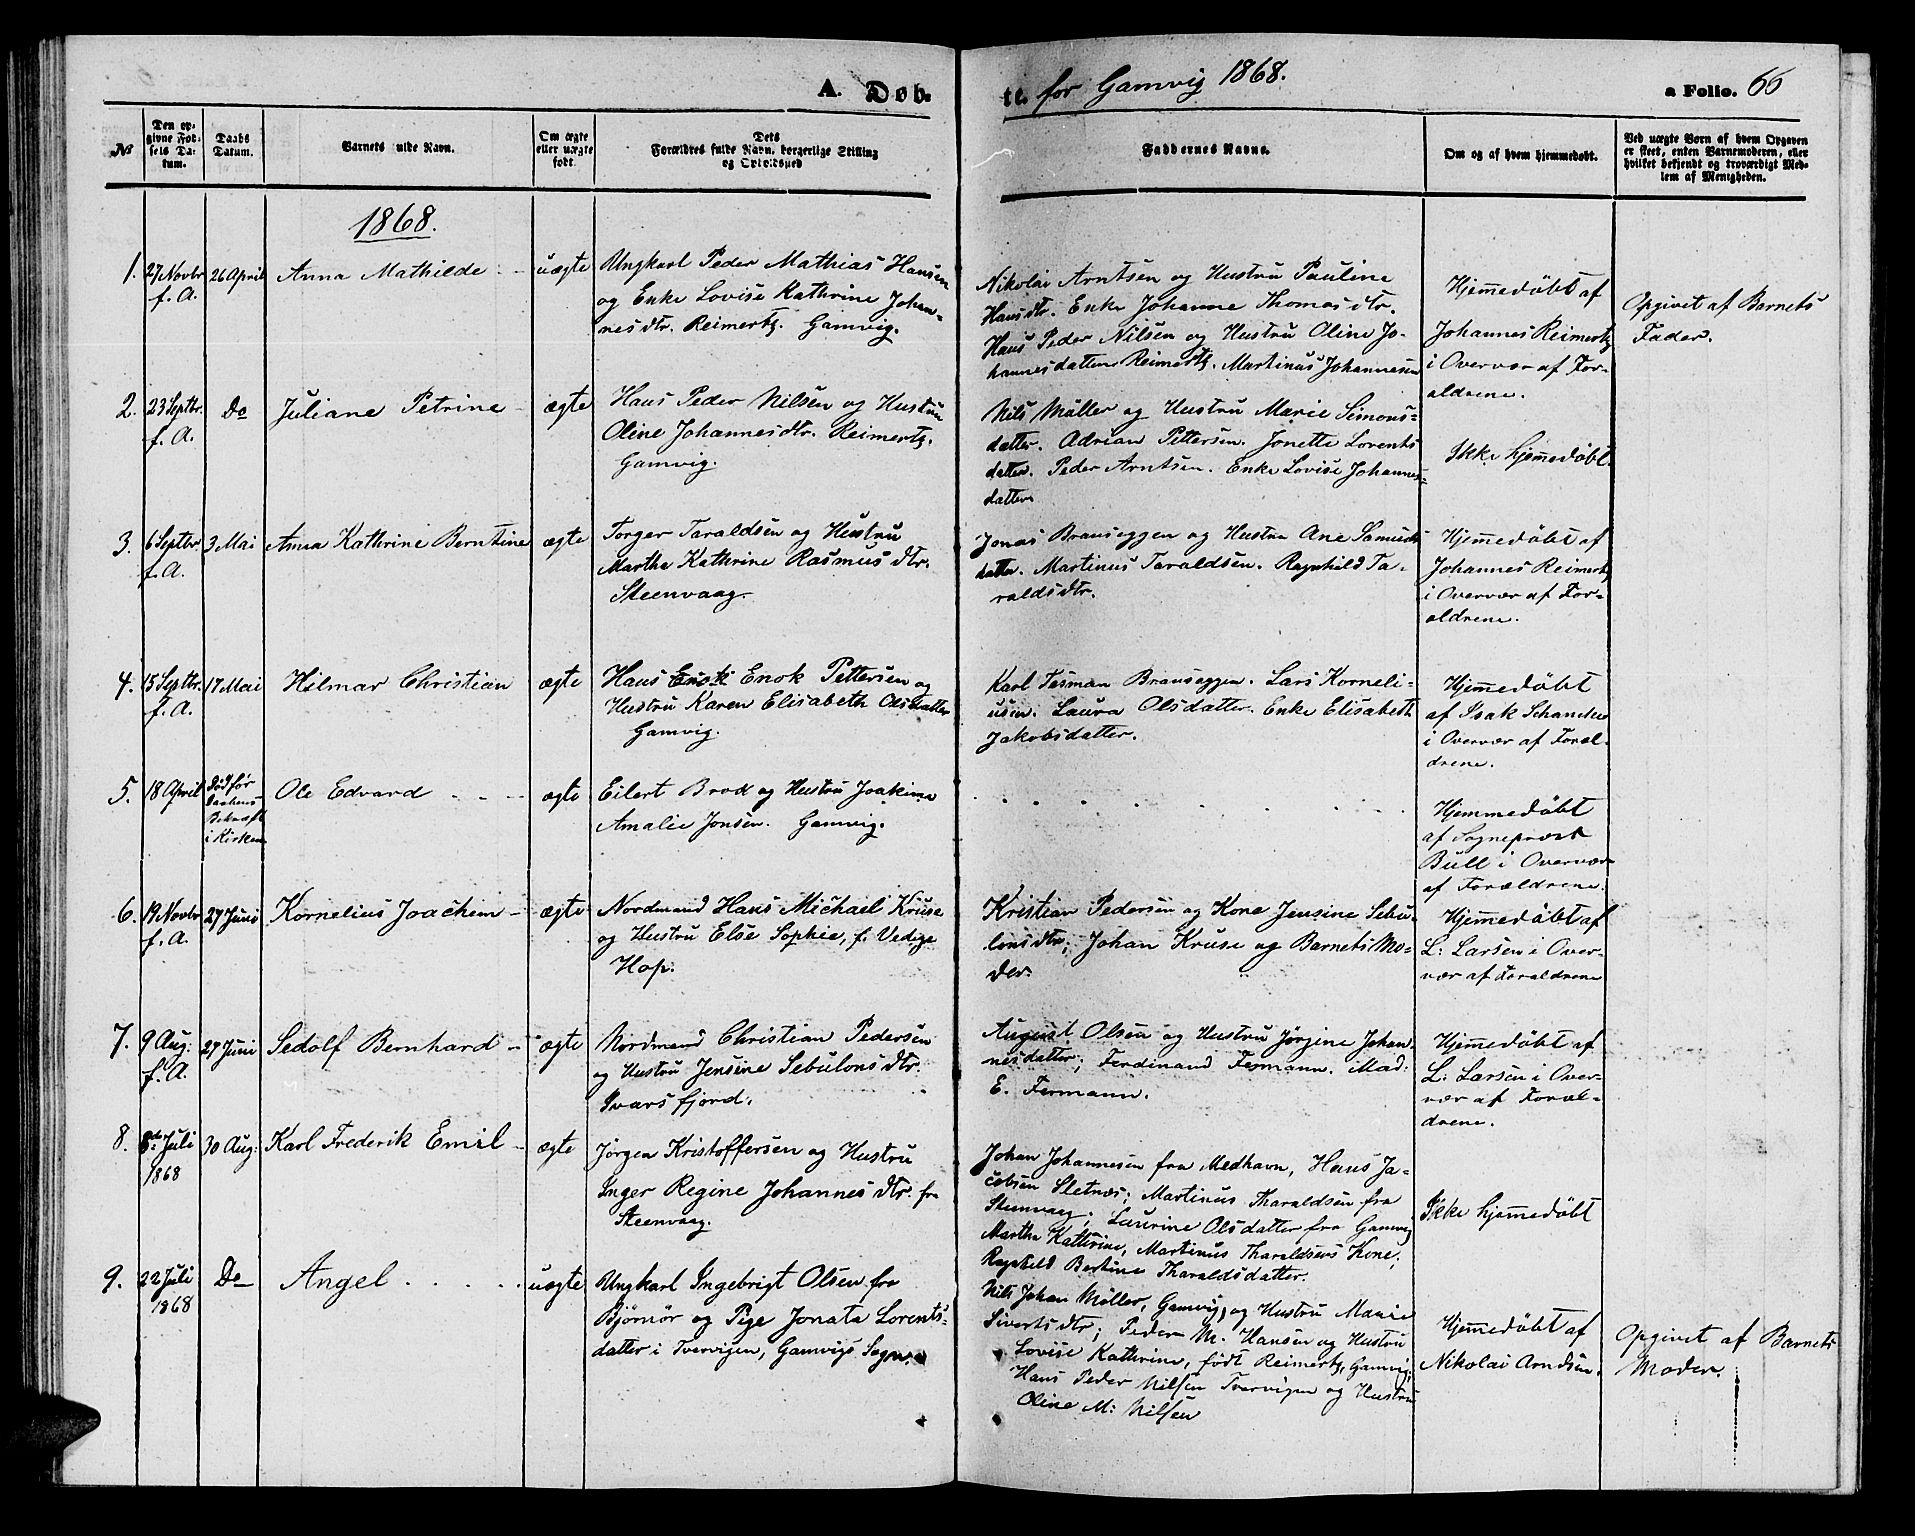 A. Døb-
te. for Gamvig 1868.
a Folio. 66
No
Den op-
givne Fød-
sels Da-
tum.
Daabs
Datum.
Barnets fulde Navn.
Om ægte
eller uægte
født.
Dets
Forældres fulde Navn, borgerlige Stilling
og Opholdssted
Faddernes Navne.
Om og af hvem hjemmedøbt.
Ved uægte Børn af hvem Opgaven
er skeet, enten Barnemoderen, eller
hvilket bekjendt og troværdigt Med-
lem af Menigheden.
1868.
1.
27 Novbr
f. A.
26 April
Anna Mathilde
uægte
Ungkarl Peder Mathias Hansen
og Enke Lovise Kathrine Johan-
nesdtr. Reimertz. Gamvig.
Nikolai Arntsen og Hustru Pauline
Hansdtr. Enke Johanne Thomasdtr.
Hans Peder Nilsen og Hustru Oline Jo-
hannesdatter Reimertz. Martinus Johannesen
Hjemmedøbt af
Johannes Reimertz
i Overvær af For-
ældrene.
Opgivet af Barnets
Fader.
2.
23 Septbr.
f. A.
Do
Juliane Petrine
ægte
Hans Peder Nilsen og Hustru
Oline Johannesdtr. Reimertz.
Gamvig.
Nils Müller og Hustru Marie Simons-
datter. Adrian Pettersen. Jonette Lorents
datter. Peder Arntsen. Enke Lovise Johannes-
datter
Ikke hjemmedøbt.
3.
6 Septbr
f. A.
3 Mai
Anna Kathrine Berntine
ægte
Torger Taraldsen og Hustru
Martha Kathrine Rasmusdtr.
Steenvaag.
Jonas Brauseggen og Hustru Ane Samuels
datter. Martinus Taraldsen. Ragnhild Ta-
raldsdtr.
Hjemmedøbt af
Johannes Reimertz
i Overvær af For-
ældrene.
4.
15 Septbr.
f. A.
17 Mai
Hilmar Christian
ægte
Hans Enok Pettersen og
Hustru Karen Elisabeth Olsdatter
Gamvig.
Karl Tesman Brauseggen. Lars Korneli-
usen. Laura Olsdatter. Enke Elisabeth
Jakobsdatter.
Hjemmedøbt
af Isak Schanche
i Overvær af Foræl-
drene.
5.
18 April
Død før
Daabens
i Kirken
Ole Edvard
ægte
Eilert Brod og Hustru Joakima
Amalie Jonsen. Gamvig.
Hjemmedøbt
af Sogneprest
Bull i Overvær
af Forældrene.
6.
19 Novbr
f. A.
27 Juni
Kornelius Joachim
ægte
Nordmand Hans Michael Kruse
og Hustru Else Sophie, f. Vedige
Hop.
Kristian Pedersen og Kone Jensine Sebu-
lonsdtr; Johan Kruse og Barnets Mo-
der.
Hjemmedøbt af
L: Larsen i Over-
vær af Forældrene
7.
9 Aug:
f. A.
27 Juni
Sedolf Bernhard
ægte
Nordmand Christian Pedersen
og Hustru Jensine Sebulonsdtr.
Ivarsfjord.
August Olsen og Hustru Jørgine Johan-
nesdatter; Ferdinand Fermann. Mad:
E. Fermann.
Hjemmedøbt af
L: Larsen i Over-
vær af Foræl-
drene.
8.
8de Juli
1868
30 Aug:
Karl Frederik Emil
ægte
Jørgen Kristoffersen og Hustru
Inger Regine Johannesdtr. fra
Steenvaag.
Johan Johannesen fra Medhavn, Hans Ja-
cobsen Sletnæs; Martinus Tharaldsen fra
Steenvaag; Laurine Olsdatter fra Gamvig
Martha Kathrine, Martinus Tharaldsens Kone;
Ragnhild Bertine Tharaldsdatter.
Ikke hjemmedøbt
9.
22 Juli
1868
Do
Angel
uægte
Ungkarl Ingebrigt Olsen fra
Bjørnør og Pige Jonata Lorents-
datter i Tvervigen, Gamvigs Sogn.
Nils Johan Müller, Gamvig, og Hustru Marie
Sivertsdtr; Peder M. Hansen og Hustru
Lovise Kathrine, født Reimertz, Gamvig;
Hans Peder Nilsen Tvervigen og Hustru
Oline M: Nilsen
Hjemmedøbt af
Nikolai Arndsen.
Opgivet af Barnets
Moder.